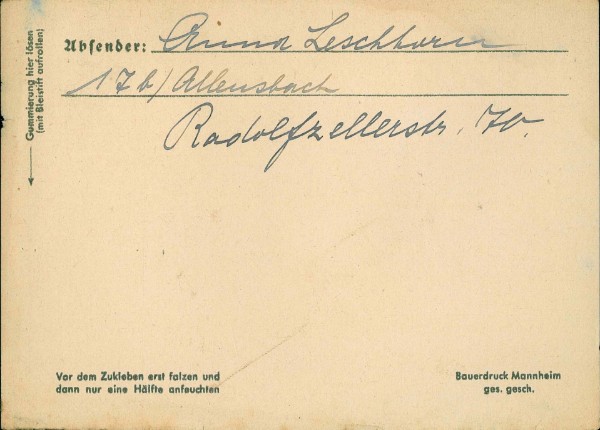 Gummierung hier lösen
(mit Bleistift aufrollen)
Absender: Anna Leschhorn
17b/Allensbach
Radolfzellerstr. 70.
Vor dem Zukleben erst falzen und
dann nur eine Hälfte anfeuchten
Bauerdruck Mannheim
ges. gesch.